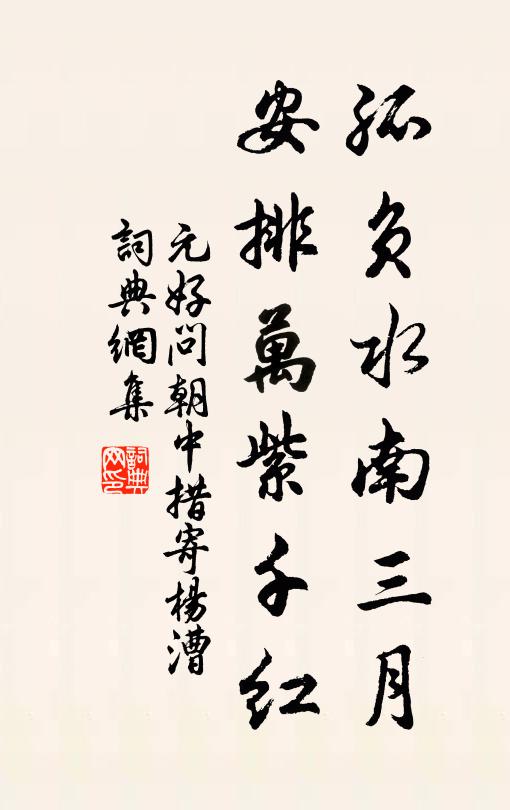 孤負水南三月
安排萬紫千紅
元好問朝中措寄楊漕
詞典網集
詞典网印